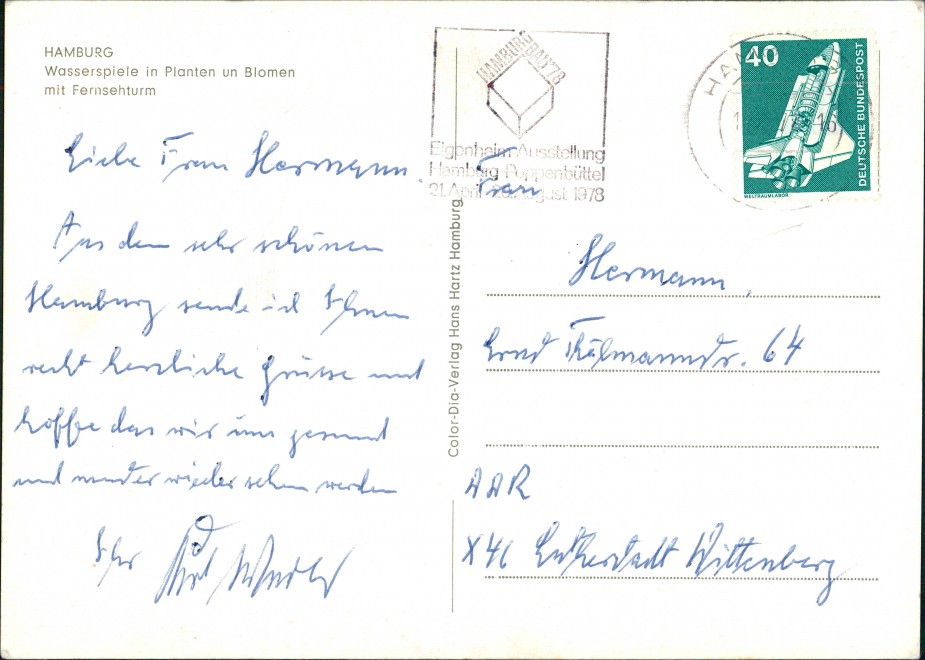 HAMBURG
Wasserspiele in Planten un Blomen
mit Fernsehturm
Liebe Frau Hermann.
Aus dem sehr schönen
Hamburg sende ich Ihnen
recht herzliche Grüsse und
hoffe das wir uns gesund
und munter wieder sehen werden
Ihr
Color-Dia-Verlag Hans Hartz Hamburg
HAMBURG BAU '78
Eigenheim-Ausstellung
Hamburg-Poppenbüttel
21. April 1978
40
DEUTSCHE BUNDESPOST
WELTRAUMLABOR
Frau
Hermann,
Ernst Thälmannstr. 64
X46 Lutherstadt Wittenberg